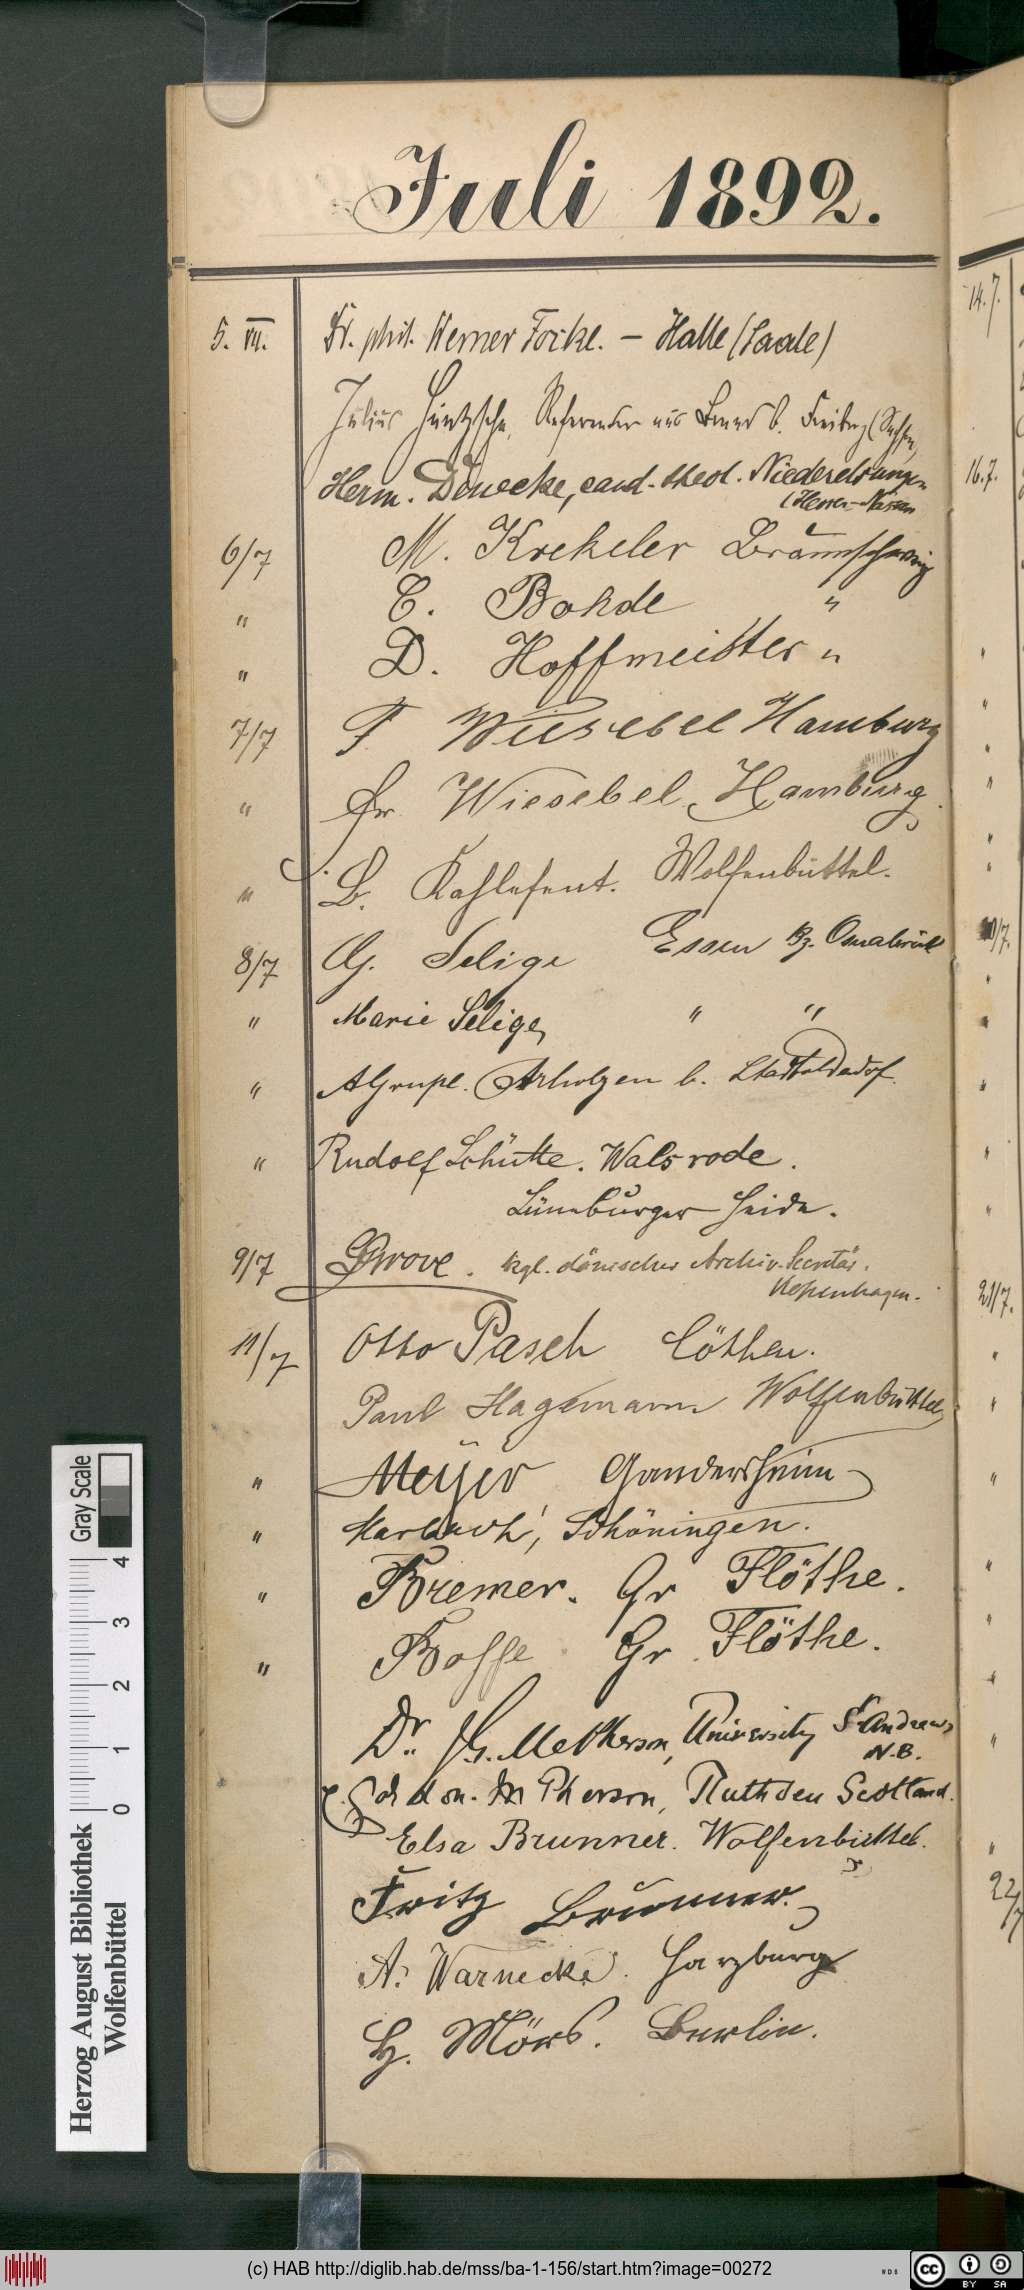 Juli 1892.
5. VII. Dr. phil. Werner Focke. – Halle (Saale)
Julius Hintzsche, Referendar aus b. Freiberg (Sachsen)
Herm. Dönecke, cand. theol. Niederelsungen
(Hessen-Nassau
6/7 M. Krekeler Braunschweig
" C. Bohde "
" D. Hoffmeister "
7/7 F Wiesebel Hamburg
" Fr Wiesebel Hamburg.
" B. Kahlefent. Wolfenbüttel.
8/7 G. Selige Essen Bz. Osnabrück
" Marie Selige, " "
" A Grupe. Arholzen b. Stadtoldendorf.
" Rudolf Schütte. Walsrode.
Lüneburger Heide.
9/7 Grove. kgl. dänischer Archiv-Secretär.
Kopenhagen.
11/7 Otto Pasch Cöthen.
Paul Hagemann Wolfenbüttel
" Meÿer Gandersheim
" Marbach, Schöningen.
" Bremer. Gr Flöthe.
" Bosse Gr. Flöthe.
Dr. J. G. McPherson, University St Andrews
N.B.
Gordon McPherson, Ruthven Scotland.
Elsa Brunner. Wolfenbüttel.
Fritz Brunner.
A. Warnecke. Harzburg
H. Mörs. Berlin.
14.7.
16.7.
21/7.
22/7
Herzog August Bibliothek
Wolfenbüttel
0 1 2 3 4
Gray Scale
(c) HAB http://diglib.hab.de/mss/ba-1-156/start.htm?image=00272
WDB
cc BY SA